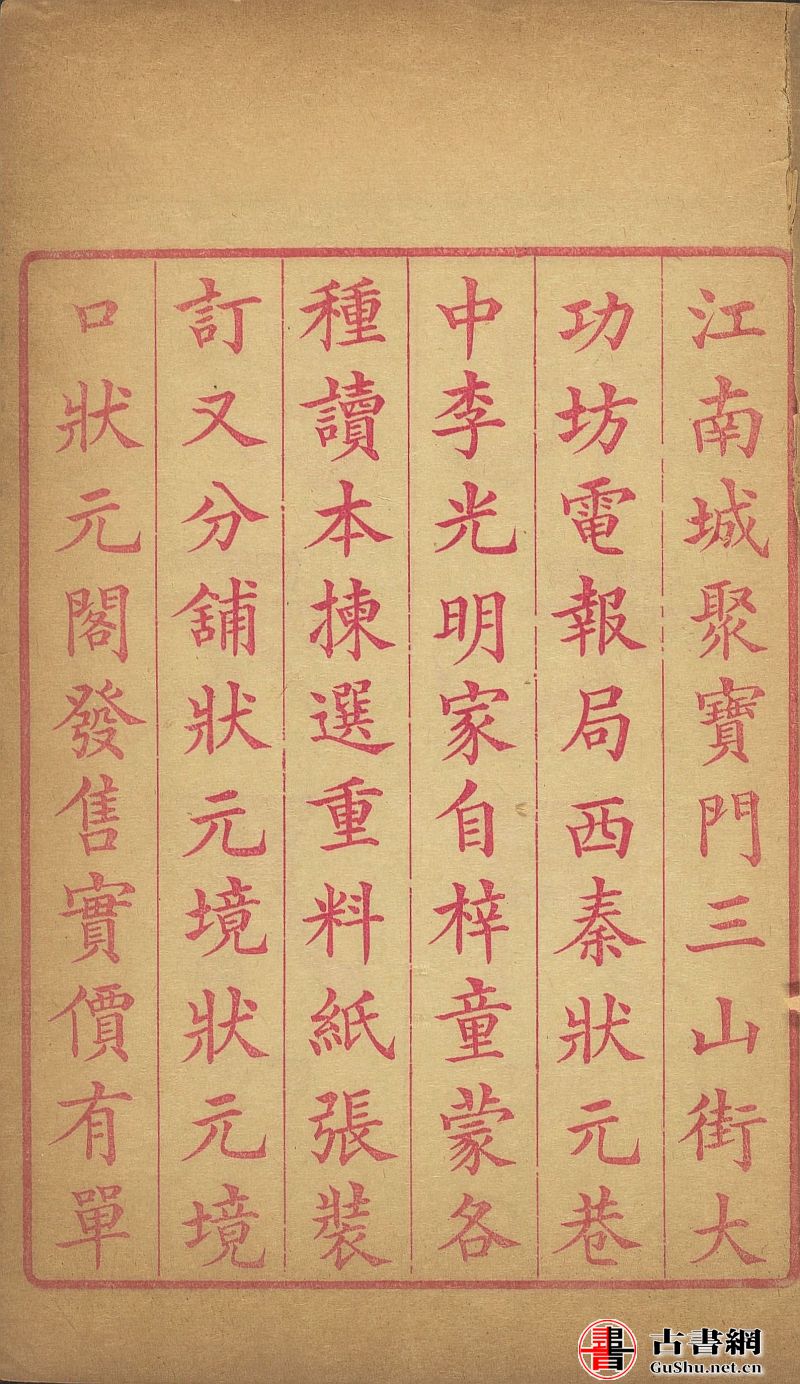 江南城聚寶門三山街大
功坊電報局西秦狀元巷
中李光明家自梓童蒙各
種讀本揀選重料紙張裝
訂又分舖狀元境狀元境
口狀元閣發售實價有單
古書網
GuShu.net.cn